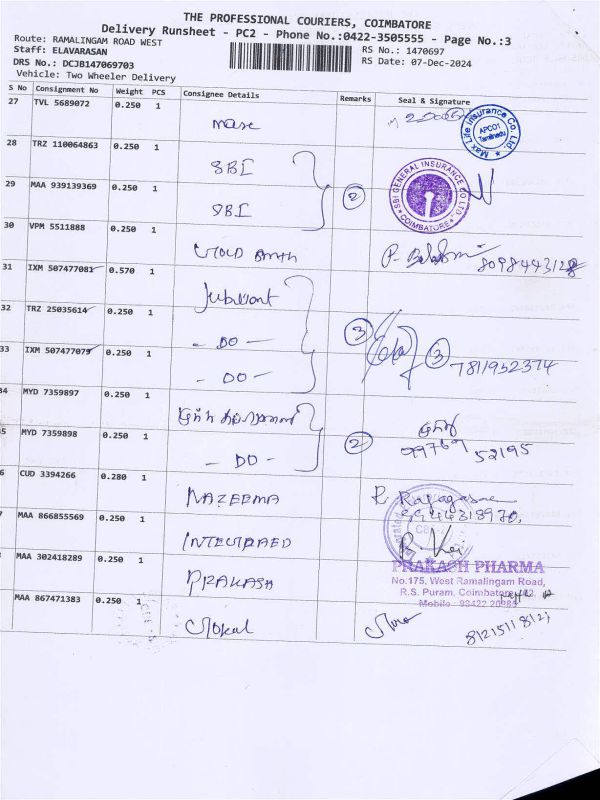 THE PROFESSIONAL COURIERS, COIMBATORE
Delivery Runsheet - PC2 - Phone No.:0422-3505555 - Page No.:3
Route: RAMALINGAM ROAD WEST
Staff: ELAVARASAN
RS No.: 1470697
DRS No.: DCJB147069703
RS Date: 07-Dec-2024
Vehicle: Two Wheeler Delivery
S No Consignment No Weight PCS Consignee Details Remarks Seal & Signature
27 TVL 5689072 0.250 1
Max Life Insurance Co. Ltd. APC01 Tamilnadu
28 TRZ 110064863 0.250 1 SBI
29 MAA 939139369 0.250 1 SBI 2
SBI GENERAL INSURANCE CO LTD COIMBATORE
30 VPM 5511888 0.250 1
31 IXM 507477081 0.570 1 Jubilant
32 TRZ 25035614 0.250 1 - DO - 3
33 IXM 507477079 0.250 1 - DO - 3 7811952374
34 MYD 7359897 0.250 1
35 MYD 7359898 0.250 1 - DO - 2 99769 52195
6 CUD 3394266 0.280 1 NAZEEMA
9944318970
MAA 866855569 0.250 1 INTEGRAED
MAA 302418289 0.250 1 PRAKASH
PRAKASH PHARMA
No.175, West Ramalingam Road,
R.S. Puram, Coimbatore
Mobile
MAA 867471383 0.250 1 Gokal